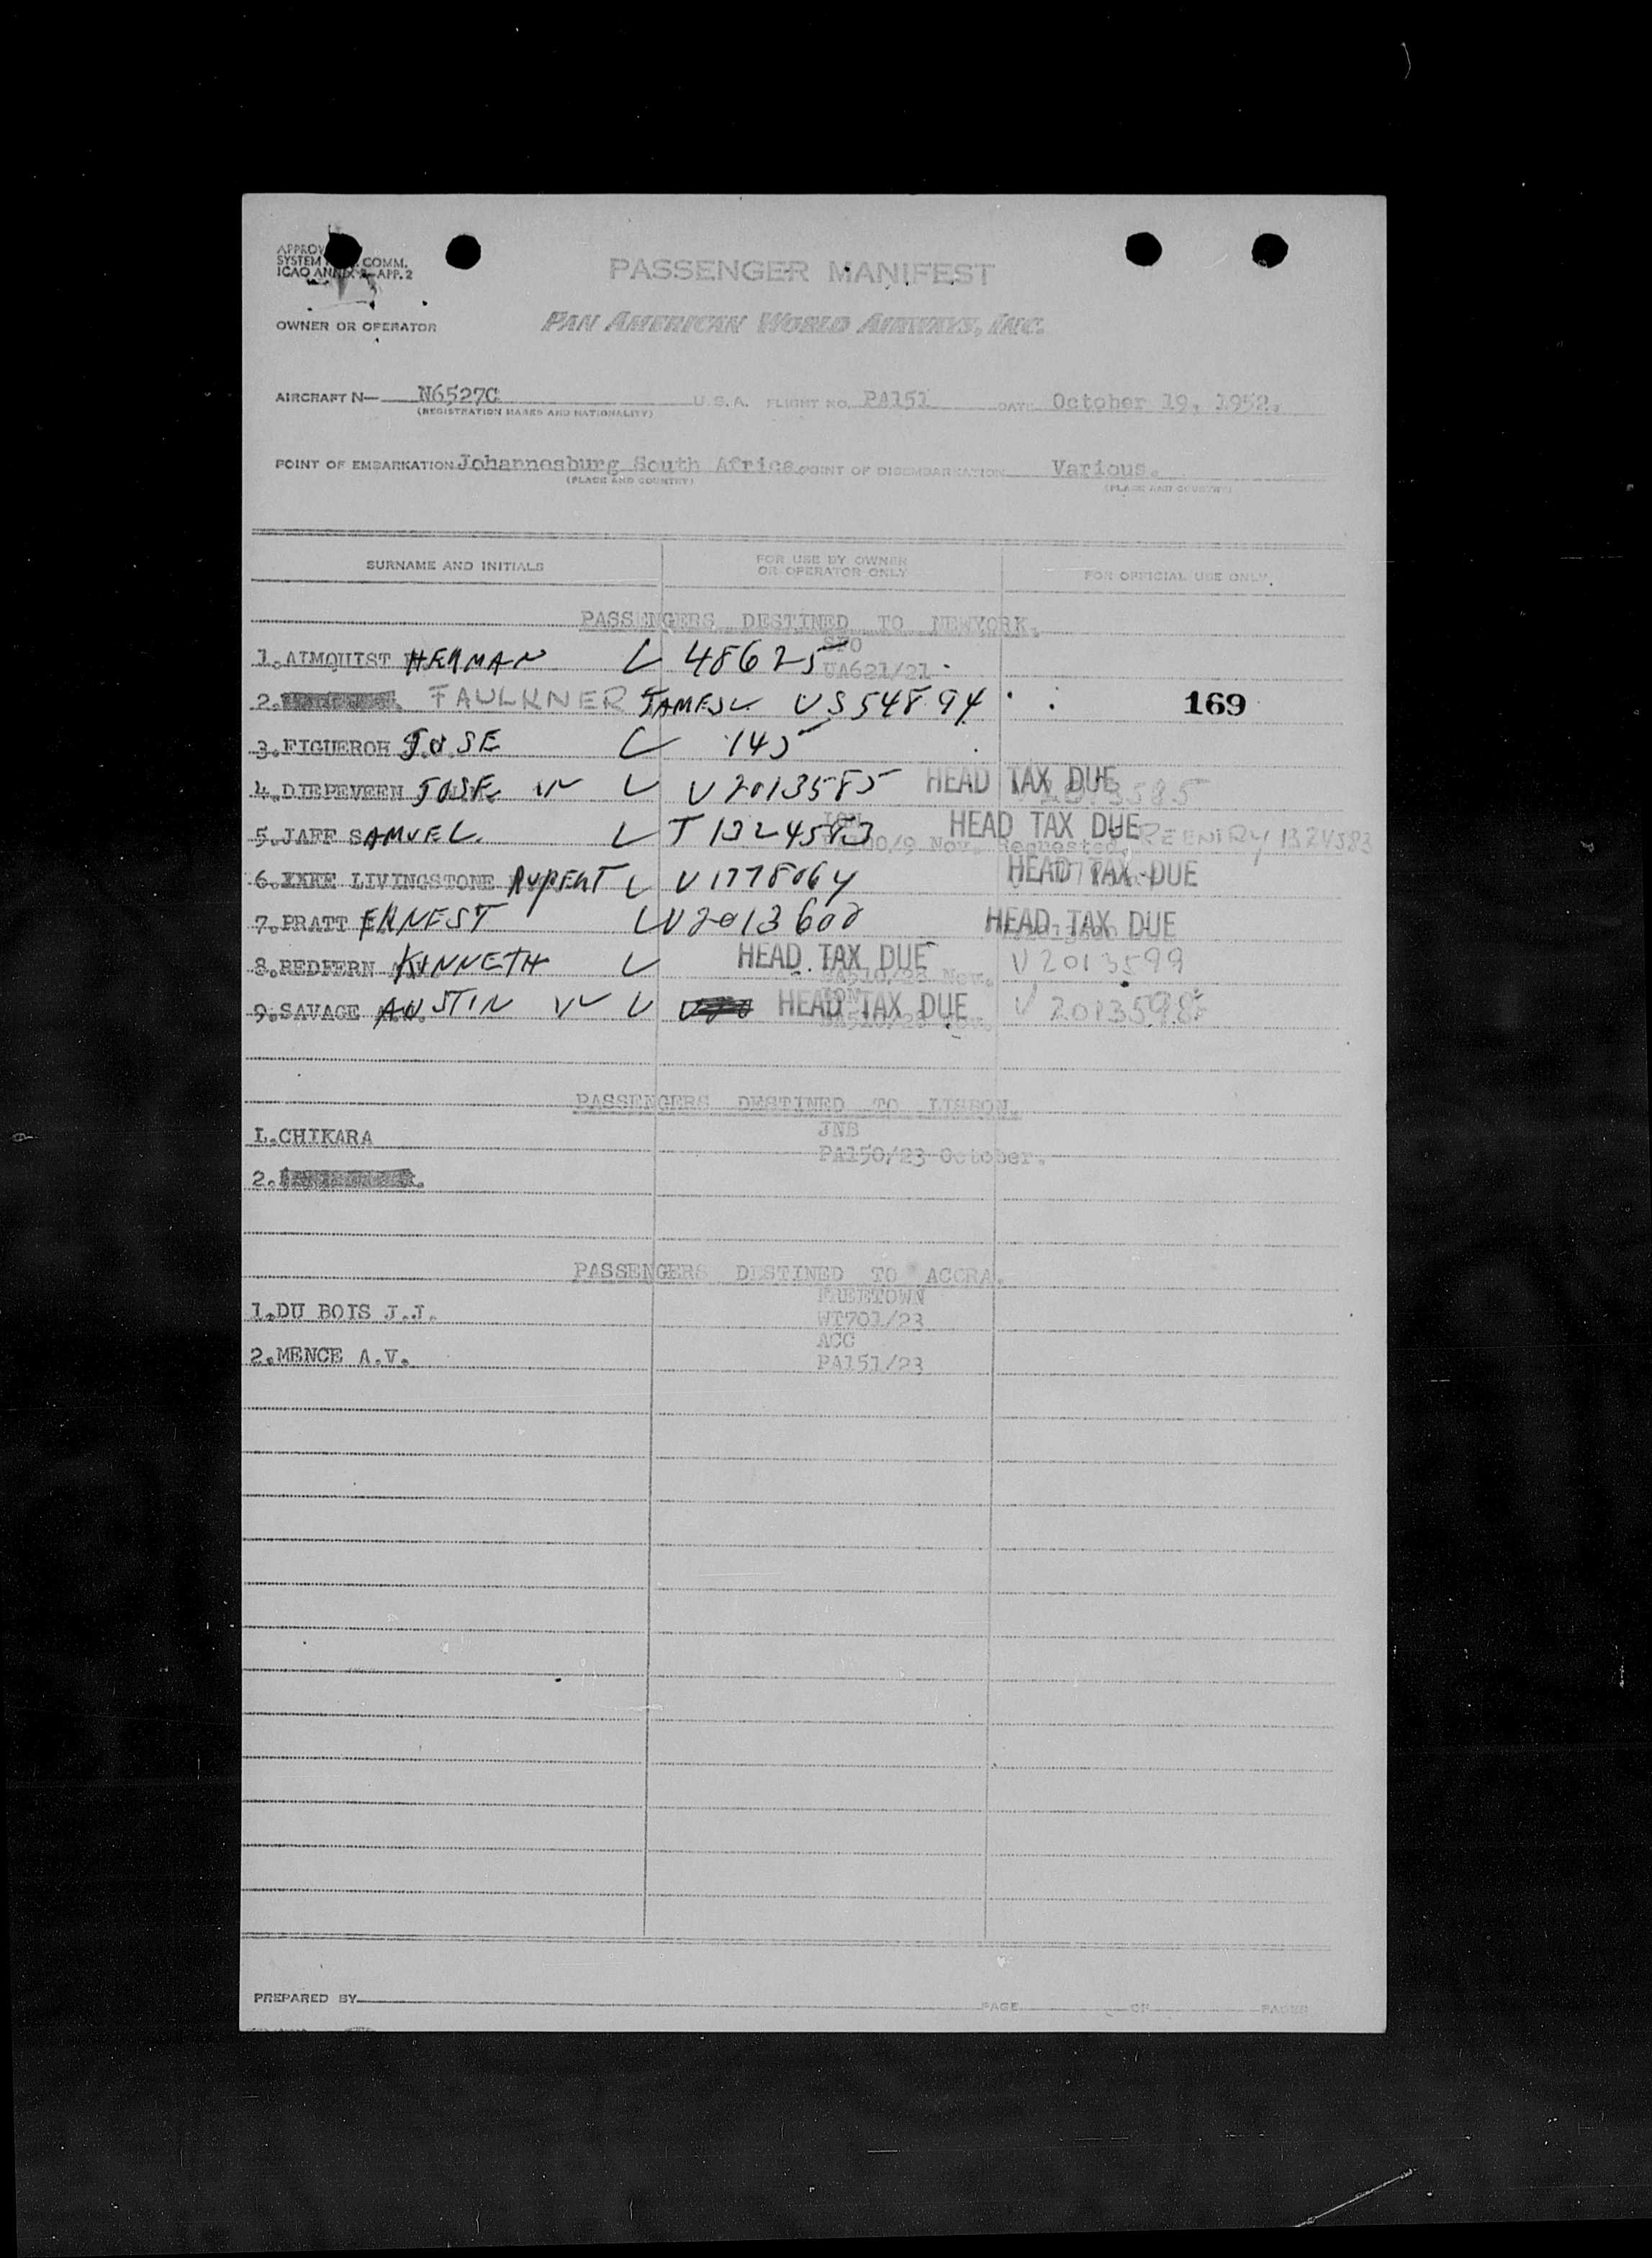 APPROV
SYSTEM COMM.
ICAO ANNEX 9-APP. 2
PASSENGER MANIFEST
OWNER OR OPERATOR PAN AMERICAN WORLD AIRWAYS, INC.
AIRCRAFT N— N6527C U.S.A. FLIGHT NO. PA151 DATE October 19, 1952.
(REGISTRATION MARKS AND NATIONALITY)
POINT OF EMBARKATION Johannesburg South Africa. POINT OF DISEMBARKATION Various.
(PLACE AND COUNTRY) (PLACE AND COUNTRY)
SURNAME AND INITIALS FOR USE BY OWNER OR OPERATOR ONLY FOR OFFICIAL USE ONLY
PASSENGERS DESTINED TO NEWYORK.
SFO
1.ALMQUIST HERMAN L 48625 UA621/21
2. FAULKNER JAMES L US54894 169
3.FIGUEROH JOSE L 145
4.DIEPEVEEN JOSE L V2013585 HEAD TAX DUE 3585
5.JAFF SAMUEL L T1324583 HEAD TAX DUE REENTRY 1324583
/9 Nov. Requested.
6. LIVINGSTONE RUPERT L V1778064 HEAD TAX DUE
7.PRATT ERNEST L V2013600 HEAD TAX DUE
8.REDFERN KINNETH L HEAD TAX DUE V2013599
510/28 Nov.
9.SAVAGE AUSTIN L HEAD TAX DUE V2013598
PASSENGERS DESTINED TO LISBON.
JNB
1.CHIKARA PA150/23 October.
2.
PASSENGERS DESTINED TO ACCRA.
FREETOWN
1.DU BOIS J.J. WT701/23
ACC
2.MENCE A.V. PA151/23
PREPARED BY PAGE OF PAGES